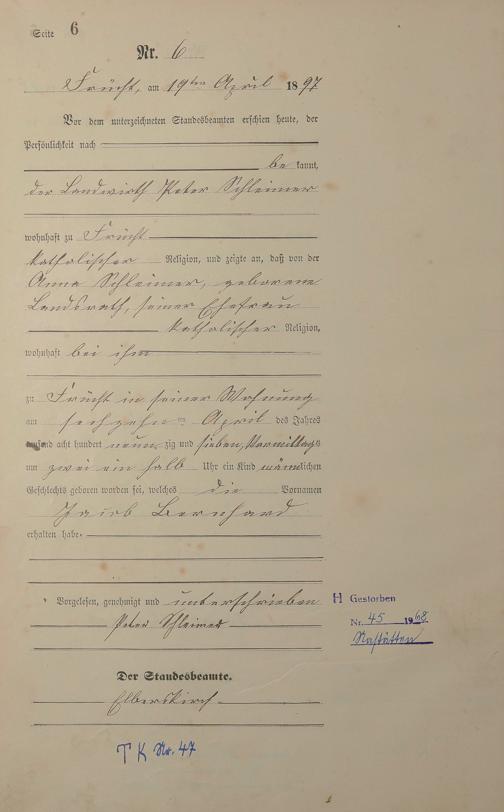 Seite 6
Nr. 6
Frücht, am 19ten April 1897
Vor dem unterzeichneten Standesbeamten erschien heute, der
Persönlichkeit nach
be kannt,
der Landwirth Peter Schleimer
wohnhaft zu Frücht
katholischer Religion, und zeigte an, daß von der
Anna Schleimer, geborene
Landsrath, seiner Ehefrau
katholischer Religion,
wohnhaft bei ihm
zu Frücht in seiner Wohnung
am sechzehn ten April des Jahres
tausend acht hundert neun zig und sieben, Vormittags
um zwei ein halb Uhr ein Kind männlichen
Geschlechts geboren worden sei, welches die Vornamen
Jacob Bernhard
erhalten habe.
Vorgelesen, genehmigt und unterschrieben
Peter Schleimer
H Gestorben
Nr. 45 1968
Nastätten
Der Standesbeamte.
Elberskirch
TK Nr. 47